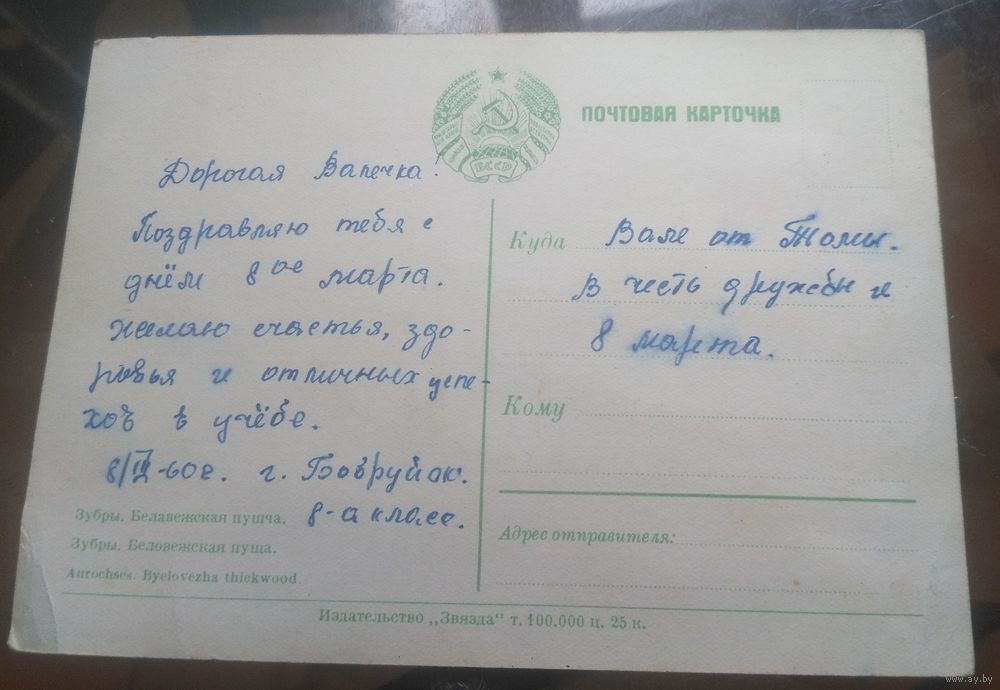 БССР
ПОЧТОВАЯ КАРТОЧКА
Дорогая Валечка!
Поздравляю тебя с
днём 8ое марта.
желаю счастья, здо-
ровья и отличных успе-
хов в учёбе.
8/III-60г. г. Бобруйск.
8-а класс.
Куда Вале от Томы.
В честь дружбы и
8 марта.
Кому
Адрес отправителя:
Зубры. Белавежская пушча.
Зубры. Беловежская пуща.
Aurochses. Byelovezha thickwood.
Издательство „Звязда“ т. 100.000 ц. 25 к.
www.ay.by